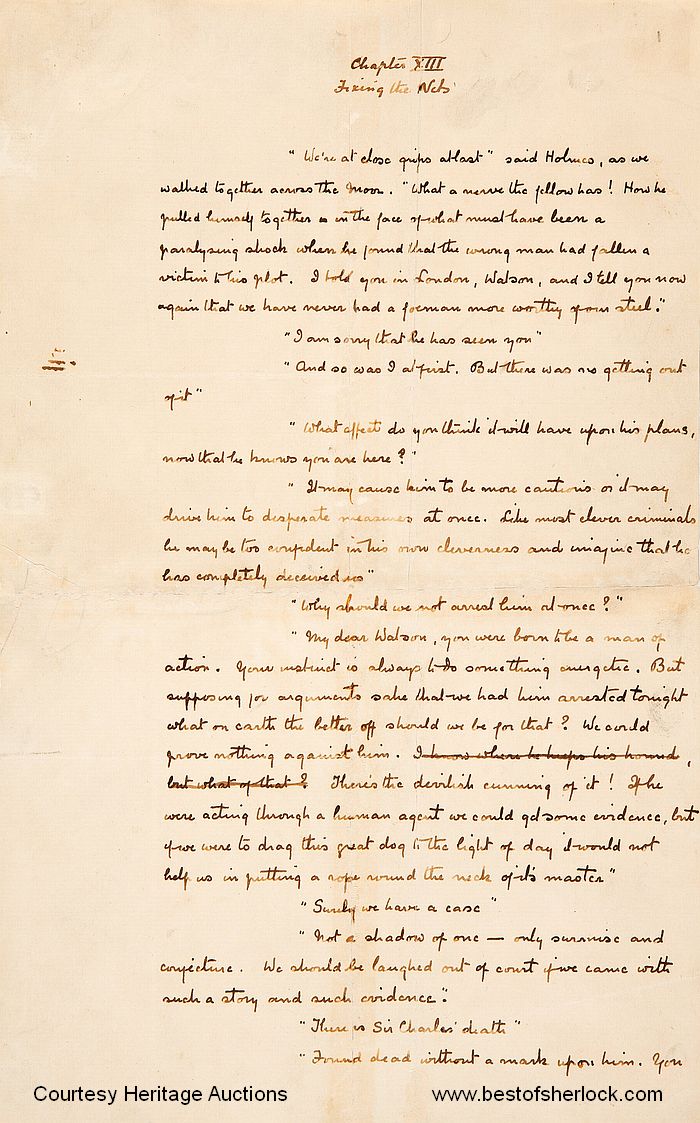 Chapter XIII
Fixing the Nets
" We're at close grips at last " said Holmes, as we
walked together across the Moor. " What a nerve the fellow has ! How he
pulled himself together in the face of what must have been a
paralysing shock when he found that the wrong man had fallen a
victim to his plot. I told you in London, Watson, and I tell you now
again that we have never had a foeman more worthy of our steel."
" I am sorry that he has seen you "
" And so was I at first. But there was no getting out
of it "
" What effect do you think it will have upon his plans,
now that he knows you are here ? "
" It may cause him to be more cautious or it may
drive him to desperate measures at once. Like most clever criminals
he may be too confident in his own cleverness and imagine that he
has completely deceived us "
" Why should we not arrest him at once ? "
" My dear Watson, you were born to be a man of
action. Your instinct is always to do something energetic. But
supposing for arguments sake that we had him arrested tonight
what on earth the better off should we be for that ? We could
prove nothing against him. I know where he keeps his hound,
but what of that ? There's the devilish cunning of it ! If he
were acting through a human agent we could get some evidence, but
if we were to drag this great dog to the light of day it would not
help us in putting a rope round the neck of its master "
" Surely we have a case "
" Not a shadow of one — only surmise and
conjecture. We should be laughed out of court if we came with
such a story and such evidence."
" There is Sir Charles' death "
" Found dead without a mark upon him. You
Courtesy Heritage Auctions
www.bestofsherlock.com